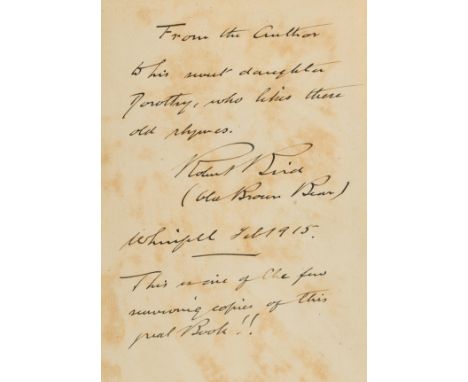 From the Author
to his sweet daughter
Dorothy, who likes these
old rhymes.
Robert Bird
(Old Brown Bear)
Whinfell Feb 1915.
This is one of the few
surviving copies of this
great Book!!